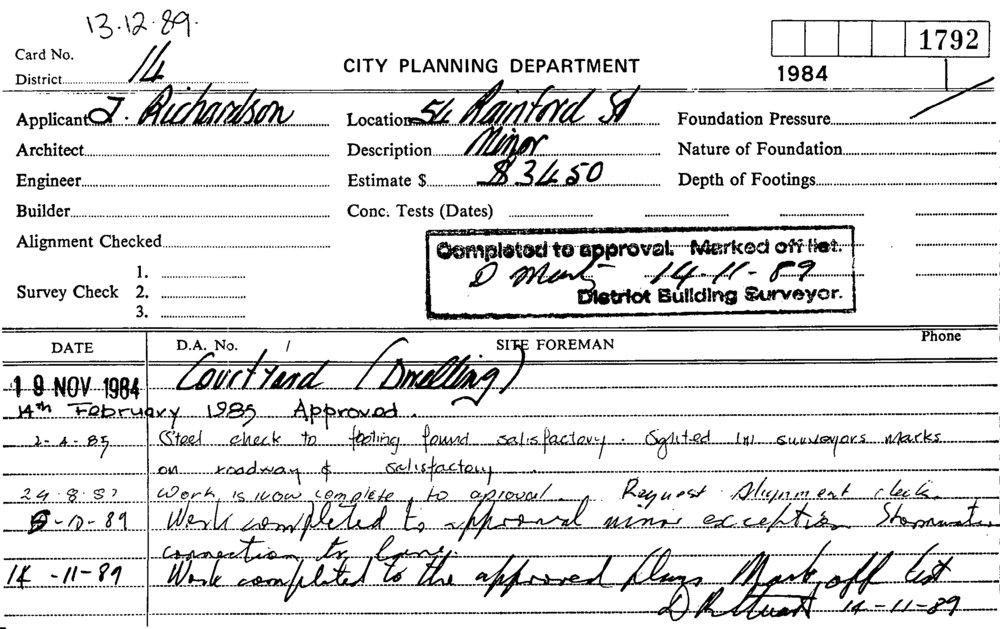 13.12.89.
Card No.
District 14
CITY PLANNING DEPARTMENT
1792
1984
Applicant J. Richardson
Location 54 Rainford St
Foundation Pressure
Architect
Description Minor
Nature of Foundation
Engineer
Estimate $ $3450
Depth of Footings
Builder
Conc. Tests (Dates)
Alignment Checked
Completed to approval. Marked off list.
D 14-11-89
District Building Surveyor.
Survey Check 1.
2.
3.
DATE D.A. No. / SITE FOREMAN Phone
19 NOV 1984 Courtyard (Dwelling)
14th February 1985 Approved.
2-4-85 Steel check to footing found satisfactory. Sighted surveyors marks
on roadway & satisfactory.
29.8.87 Work is now complete to aproval. Request Alignment check.
-10-89 Work completed to approval minor exception Stormwater
connection to lane.
14-11-89 Work completed to the approved plans Mark off list
14-11-89